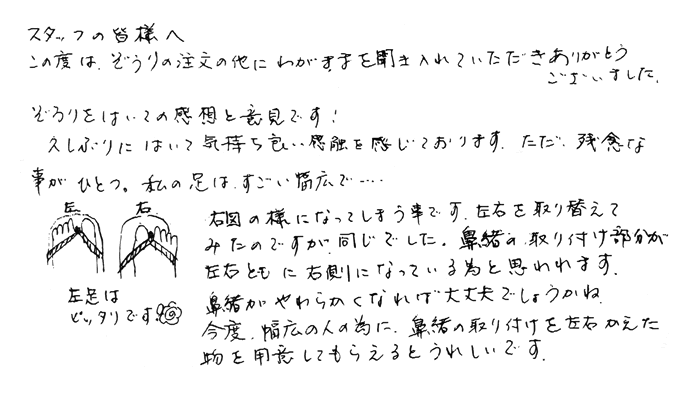 スタッフの皆様へ
この度は、ぞうりの注文の他にわがままを聞き入れていただきありがとう
ございました。
ぞうりをはいての感想と意見です!
久しぶりにはいて気持ち良い感触を感じております。ただ、残念な
事がひとつ。私の足は、すごい幅広で……
左 右
右図の様になってしまう事です。左右を取り替えて
みたのですが、同じでした。鼻緒の取り付け部分が
左右ともに右側になっている為と思われます。
左足は
ピッタリです。
鼻緒がやわらかくなれば大丈夫でしょうかね。
今度、幅広の人の為に、鼻緒の取り付けを左右かえた
物を用意してもらえるとうれしいです。